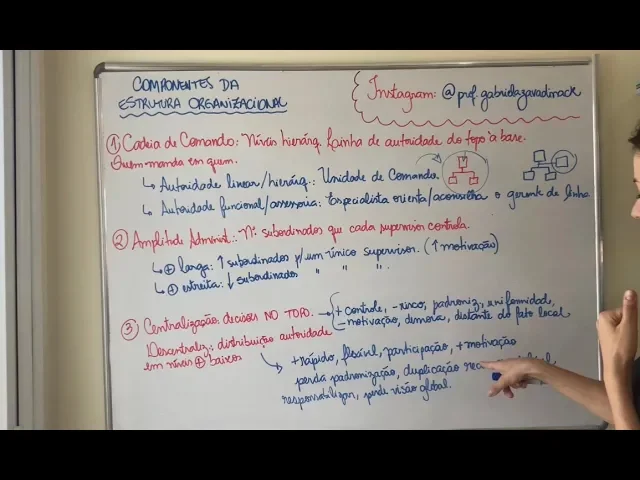 COMPONENTES DA
ESTRUTURA ORGANIZACIONAL
Instagram: @prof.gabrielazavadinack
① Cadeia de Comando: Níveis hierárq. Linha de autoridade do topo à base.
Quem manda em quem.
↳ Autoridade linear/hierárq.: Unidade de Comando.
↳ Autoridade funcional/assessoria: Especialista orienta/aconselha o gerente de linha
② Amplitude Administ.: Nº subordinados que cada supervisor controla.
↳ ⊕ larga: ↑ subordinados p/ um único supervisor. (↑ motivação)
↳ ⊕ estreita: ↓ subordinados " " ".
③ Centralização: decisões NO TOPO.
+ controle, - risco, padroniz, uniformidade,
- motivação, demora, distante do fato local
Descentraliz: distribuição autoridade
em níveis ⊕ baixos
+ rápido, flexível, participação, + motivação
perda padronização, duplicação
responsabilizar, perde visão global.